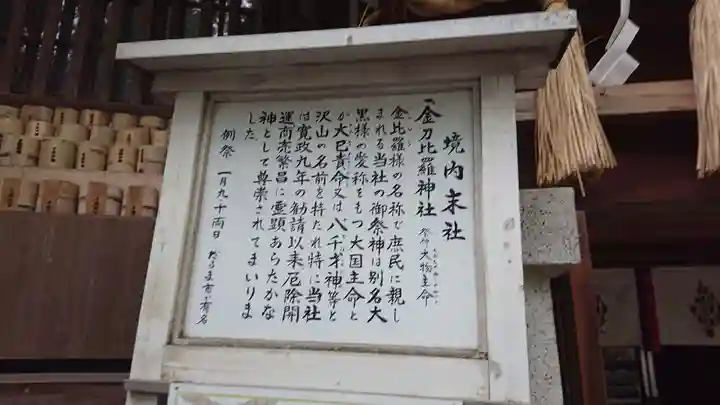 境内末社
金刀比羅神社 祭神 大物主命
金比羅様の名称で庶民に親し
まれる当社の御祭神は別名大
黒様の愛称をもつ大国主命と
か大巳貴命又は八千才神等と
沢山の名前を持たれ特に当社
は寛政九年の勧請以来厄除開
運商売繁昌に霊顕あらたかな
神として尊崇されてまいりま
した
例祭 一月九・十両日 だるま市が有名